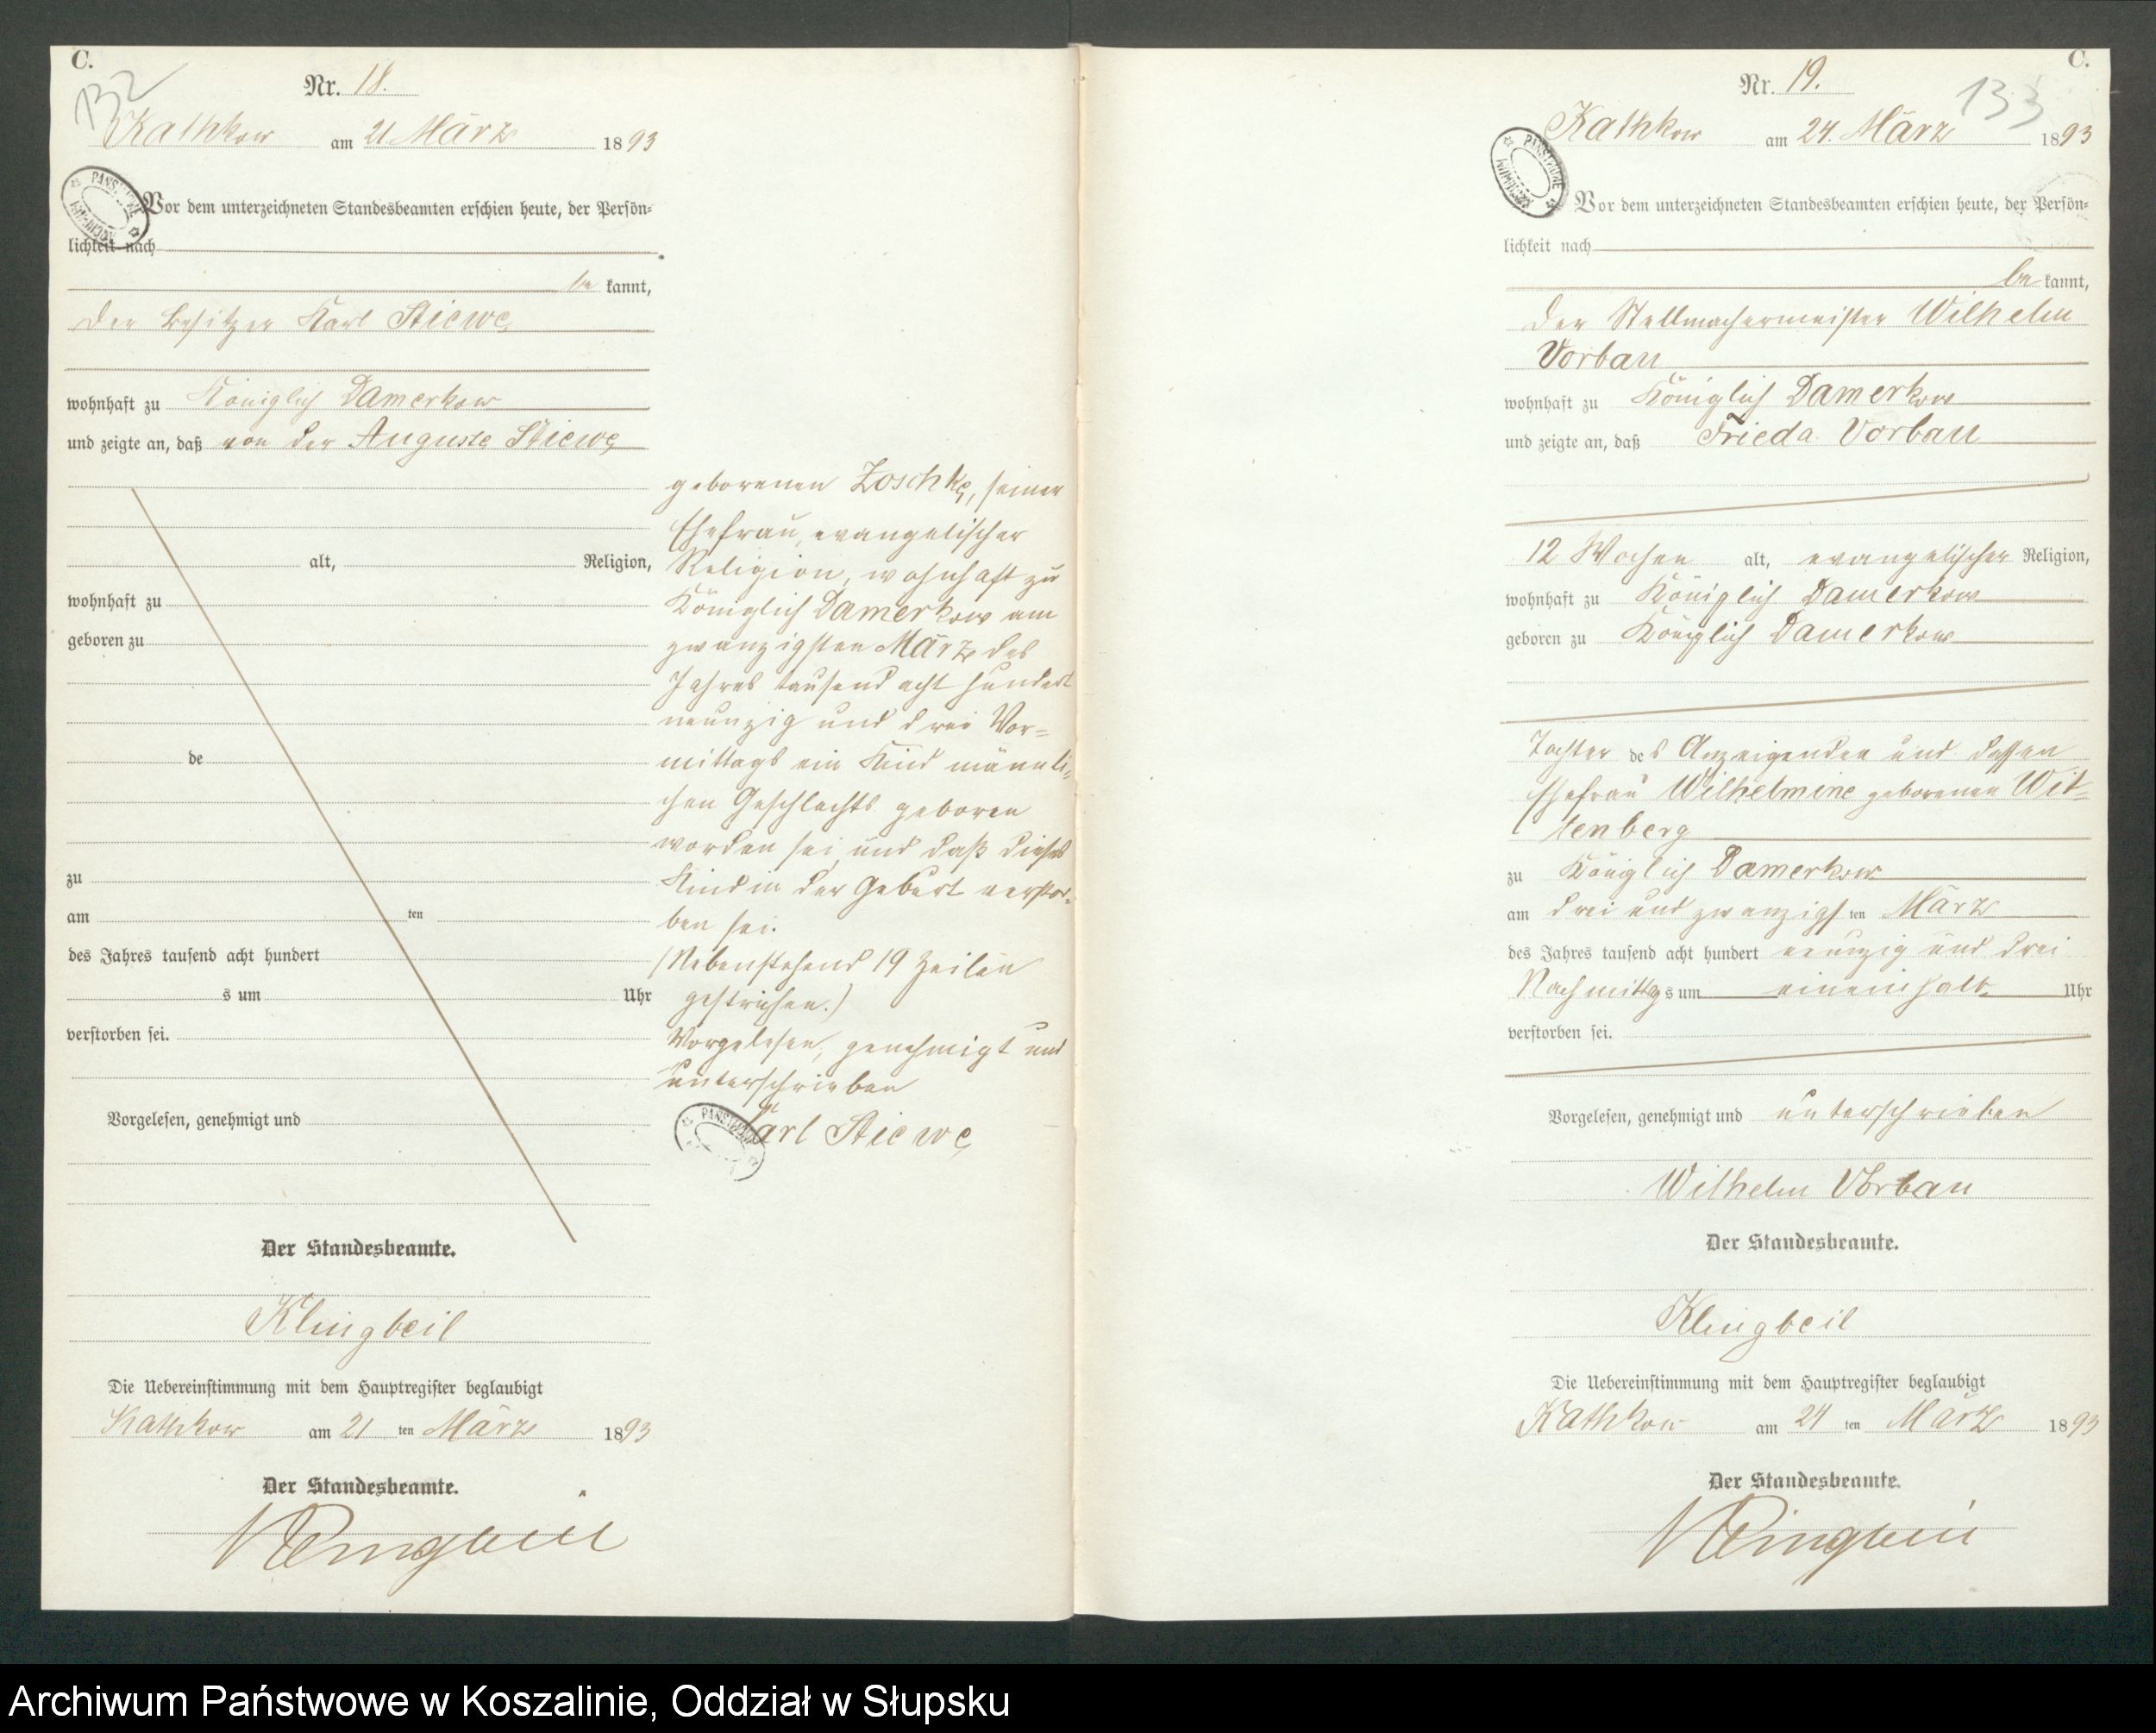 C.
132
Nr. 18.
Kathkow am 21 März 1893
Vor dem unterzeichneten Standesbeamten erschien heute, der Persön=
lichkeit nach
be kannt,
der Besitzer Karl Stiewe
wohnhaft zu Königlich Damerkow
und zeigte an, daß von der Auguste Stiewe
geborenen Zoschke, seiner
Ehefrau, evangelischer
alt, Religion,
Religion, wohnhaft zu
wohnhaft zu
Königlich Damerkow am
geboren zu
zwanzigsten März des
Jahres tausend acht hundert
neunzig und drei Vor=
de
mittags ein Kind männli=
chen Geschlechts geboren
worden sei, und daß dieses
zu
Kind in der Geburt verstor=
am ten
ben sei.
des Jahres tausend acht hundert
(Nebenstehend 19 Zeilen
s um Uhr
gestrichen.)
verstorben sei.
Vorgelesen, genehmigt und
unterschrieben
Vorgelesen, genehmigt und
Karl Stiewe
Der Standesbeamte.
Klingbeil
Die Uebereinstimmung mit dem Hauptregister beglaubigt
Kathkow am 21 ten März 1893
Der Standesbeamte.
Klingbeil
C.
133
Nr. 19.
Kathkow am 24. März 1893
Vor dem unterzeichneten Standesbeamten erschien heute, der Persön=
lichkeit nach
be kannt,
der Stellmachermeister Wilhelm
Vorbau
wohnhaft zu Königlich Damerkow
und zeigte an, daß Frieda Vorbau
12 Wochen alt, evangelischer Religion,
wohnhaft zu Königlich Damerkow
geboren zu Königlich Damerkow
Tochter des Anzeigenden und dessen
Ehefrau Wilhelmine geborenen Wit=
tenberg
zu Königlich Damerkow
am drei und zwanzigs ten März
des Jahres tausend acht hundert neunzig und drei
Nachmittags um eineinhalb Uhr
verstorben sei.
Vorgelesen, genehmigt und unterschrieben
Wilhelm Vorbau
Der Standesbeamte.
Klingbeil
Die Uebereinstimmung mit dem Hauptregister beglaubigt
Kathkow am 24 ten März 1893
Der Standesbeamte.
Klingbeil
Archiwum Państwowe w Koszalinie, Oddział w Słupsku